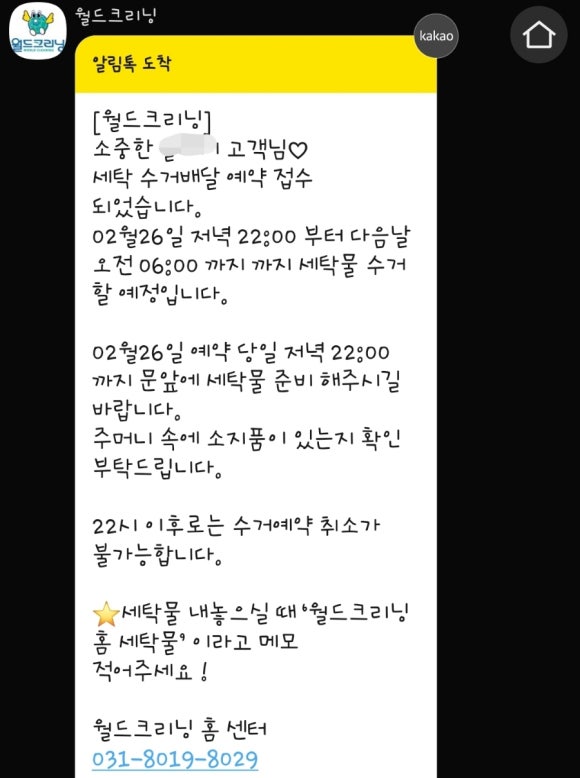 월드크리닝
WORLD CLEANING
월드크리닝
kakao
알림톡 도착
[월드크리닝]
소중한 고객님♡
세탁 수거배달 예약 접수
되었습니다.
02월26일 저녁 22:00 부터 다음날
오전 06:00 까지 까지 세탁물 수거
할 예정입니다.
02월26일 예약 당일 저녁 22:00
까지 문앞에 세탁물 준비 해주시길
바랍니다.
주머니 속에 소지품이 있는지 확인
부탁드립니다.
22시 이후로는 수거예약 취소가
불가능합니다.
⭐세탁물 내놓으실 때 '월드크리닝
홈 세탁물' 이라고 메모
적어주세요!
월드크리닝 홈 센터
031-8019-8029